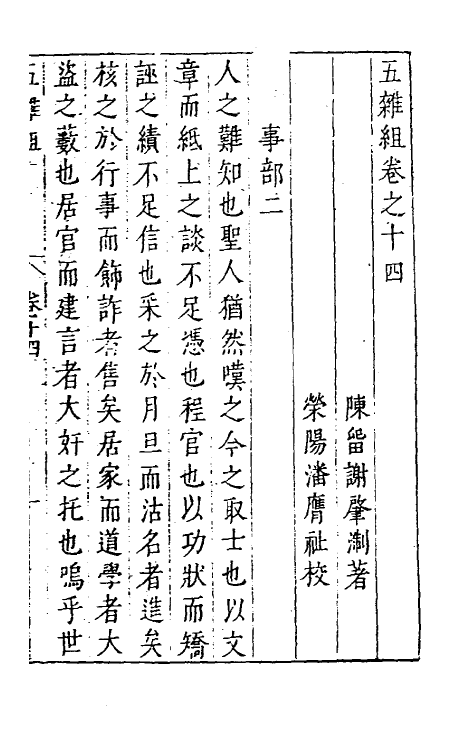 五雜組卷之十四
陳留謝肇淛著
滎陽潘膺祉校
事部二
人之難知也聖人猶然嘆之今之取士也以文
章而紙上之談不足憑也程官也以功狀而矯
誣之績不足信也采之於月旦而沽名者進矣
核之於行事而飾詐者售矣居家而道學者大
盜之藪也居官而建言者大奸之托也嗚乎世
五雜組 卷十四 一